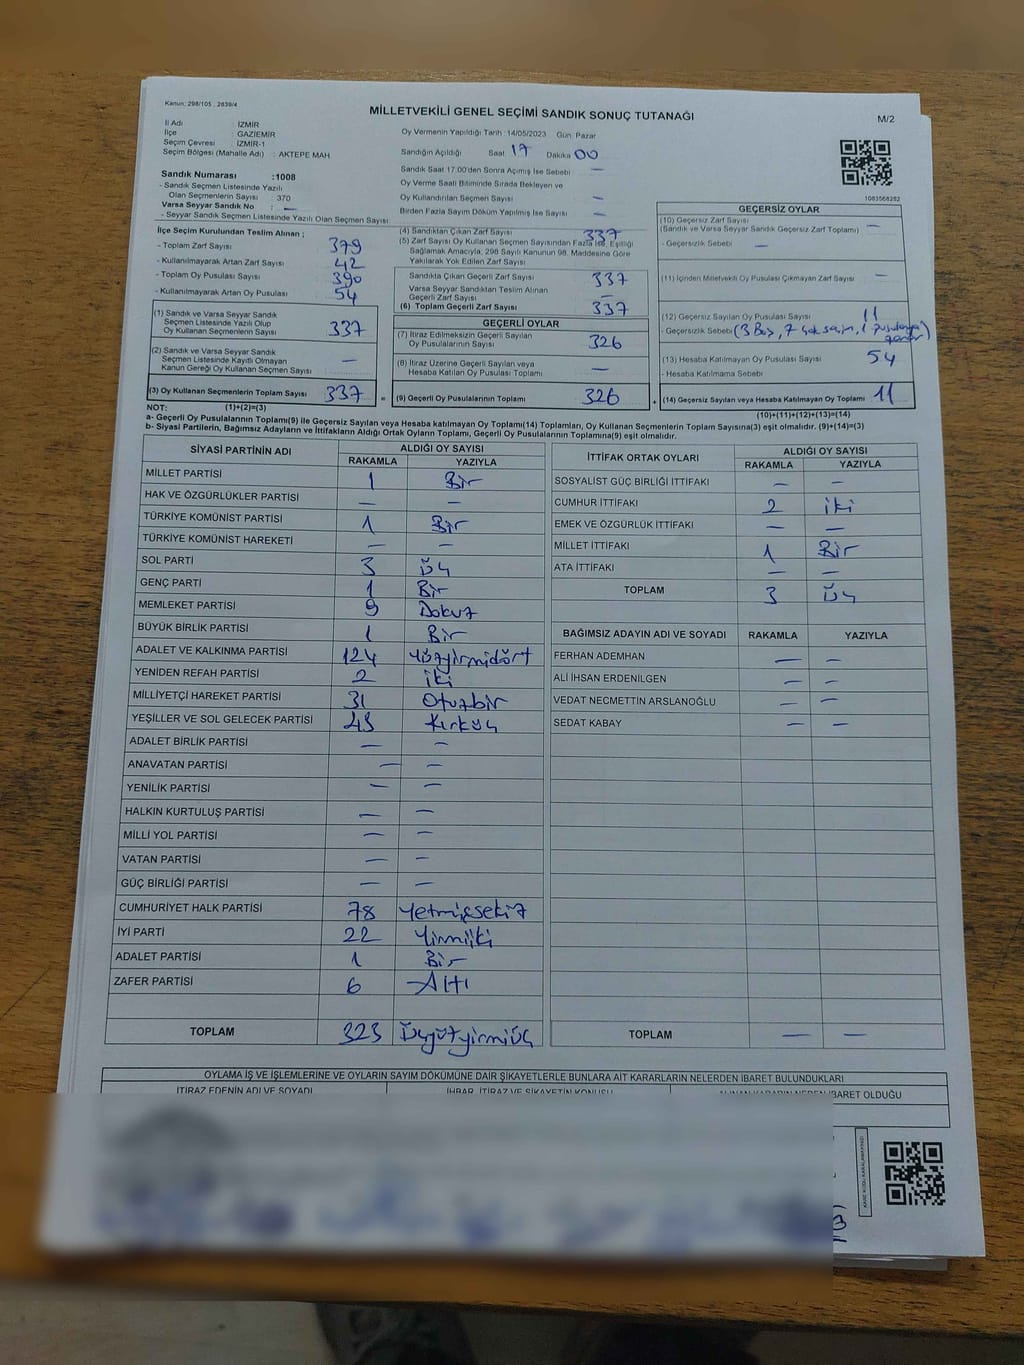 Kanun: 298/105 , 2839/4
MİLLETVEKİLİ GENEL SEÇİMİ SANDIK SONUÇ TUTANAĞI
M/2
İl Adı : İZMİR
İlçe : GAZİEMİR
Seçim Çevresi : İZMİR-1
Seçim Bölgesi (Mahalle Adı) : AKTEPE MAH.
Oy Vermenin Yapıldığı Tarih : 14/05/2023 Gün: Pazar
Sandığın Açıldığı Saat 17 Dakika 00
Sandık Saat 17.00'den Sonra Açılmış İse Sebebi —
Oy Verme Saati Bitiminde Sırada Bekleyen ve
Oy Kullandırılan Seçmen Sayısı —
Birden Fazla Sayım Döküm Yapılmış İse Sayısı —
Sandık Numarası :1008
- Sandık Seçmen Listesinde Yazılı
Olan Seçmenlerin Sayısı : 370
Varsa Seyyar Sandık No : —
- Seyyar Sandık Seçmen Listesinde Yazılı Olan Seçmen Sayısı:
1083568282
İlçe Seçim Kurulundan Teslim Alınan ;
- Toplam Zarf Sayısı 379
- Kullanılmayarak Artan Zarf Sayısı 42
- Toplam Oy Pusulası Sayısı 390
- Kullanılmayarak Artan Oy Pusulası 54
(1) Sandık ve Varsa Seyyar Sandık
Seçmen Listesinde Yazılı Olup
Oy Kullanan Seçmenlerin Sayısı 337
(2) Sandık ve Varsa Seyyar Sandık
Seçmen Listesinde Kayıtlı Olmayan
Kanun Gereği Oy Kullanan Seçmen Sayısı —
(3) Oy Kullanan Seçmenlerin Toplam Sayısı 337 =
(4) Sandıktan Çıkan Zarf Sayısı 337
(5) Zarf Sayısı Oy Kullanan Seçmen Sayısından Fazla İse, Eşitliği
Sağlamak Amacıyla, 298 Sayılı Kanunun 98. Maddesine Göre
Yakılarak Yok Edilen Zarf Sayısı
Sandıkta Çıkan Geçerli Zarf Sayısı 337
Varsa Seyyar Sandıktan Teslim Alınan
Geçerli Zarf Sayısı —
(6) Toplam Geçerli Zarf Sayısı 337
GEÇERLİ OYLAR
(7) İtiraz Edilmeksizin Geçerli Sayılan
Oy Pusulalarının Sayısı 326
(8) İtiraz Üzerine Geçerli Sayılan veya
Hesaba Katılan Oy Pusulası Toplamı —
(9) Geçerli Oy Pusulalarının Toplamı 326 +
GEÇERSİZ OYLAR
(10) Geçersiz Zarf Sayısı
(Sandık ve Varsa Seyyar Sandık Geçersiz Zarf Toplamı) —
- Geçersizlik Sebebi —
(11) İçinden Milletvekili Oy Pusulası Çıkmayan Zarf Sayısı —
(12) Geçersiz Sayılan Oy Pusulası Sayısı 11
- Geçersizlik Sebebi (3 Boş, 7 çok seçim, 1
(13) Hesaba Katılmayan Oy Pusulası Sayısı 54
- Hesaba Katılmama Sebebi
(14) Geçersiz Sayılan veya Hesaba Katılmayan Oy Toplamı 11
NOT: (1)+(2)=(3) (10)+(11)+(12)+(13)=(14)
a- Geçerli Oy Pusulalarının Toplamı(9) ile Geçersiz Sayılan veya Hesaba katılmayan Oy Toplamı(14) Toplamları, Oy Kullanan Seçmenlerin Toplam Sayısına(3) eşit olmalıdır. (9)+(14)=(3)
b- Siyasi Partilerin, Bağımsız Adayların ve İttifakların Aldığı Ortak Oyların Toplamı, Geçerli Oy Pusulalarının Toplamına(9) eşit olmalıdır.
SİYASİ PARTİNİN ADI ALDIĞI OY SAYISI
RAKAMLA YAZIYLA
MİLLET PARTİSİ 1 Bir
HAK VE ÖZGÜRLÜKLER PARTİSİ — —
TÜRKİYE KOMÜNİST PARTİSİ 1 Bir
TÜRKİYE KOMÜNİST HAREKETİ — —
SOL PARTİ 3 Üç
GENÇ PARTİ 1 Bir
MEMLEKET PARTİSİ 9 Dokuz
BÜYÜK BİRLİK PARTİSİ 1 Bir
ADALET VE KALKINMA PARTİSİ 124 Yüzyirmidört
YENİDEN REFAH PARTİSİ 2 iki
MİLLİYETÇİ HAREKET PARTİSİ 31 Otuzbir
YEŞİLLER VE SOL GELECEK PARTİSİ 43 Kırküç
ADALET BİRLİK PARTİSİ — —
ANAVATAN PARTİSİ — —
YENİLİK PARTİSİ — —
HALKIN KURTULUŞ PARTİSİ — —
MİLLİ YOL PARTİSİ — —
VATAN PARTİSİ — —
GÜÇ BİRLİĞİ PARTİSİ — —
CUMHURİYET HALK PARTİSİ 78 Yetmişsekiz
İYİ PARTİ 22 Yirmiiki
ADALET PARTİSİ 1 Bir
ZAFER PARTİSİ 6 Altı
TOPLAM 323 Üçyüzyirmiüç
İTTİFAK ORTAK OYLARI ALDIĞI OY SAYISI
RAKAMLA YAZIYLA
SOSYALİST GÜÇ BİRLİĞİ İTTİFAKI — —
CUMHUR İTTİFAKI 2 iki
EMEK VE ÖZGÜRLÜK İTTİFAKI — —
MİLLET İTTİFAKI 1 Bir
ATA İTTİFAKI — —
TOPLAM 3 Üç
BAĞIMSIZ ADAYIN ADI VE SOYADI RAKAMLA YAZIYLA
FERHAN ADEMHAN — —
ALİ İHSAN ERDENİLGEN — —
VEDAT NECMETTİN ARSLANOĞLU — —
SEDAT KABAY — —
TOPLAM — —
OYLAMA İŞ VE İŞLEMLERİNE VE OYLARIN SAYIM DÖKÜMÜNE DAİR ŞİKAYETLERLE BUNLARA AİT KARARLARIN NELERDEN İBARET BULUNDUKLARI
İTİRAZ EDENİN ADI VE SOYADI İHBAR, İTİRAZ VE ŞİKAYETİN KONUSU ALINAN KARARIN NEDEN İBARET OLDUĞU